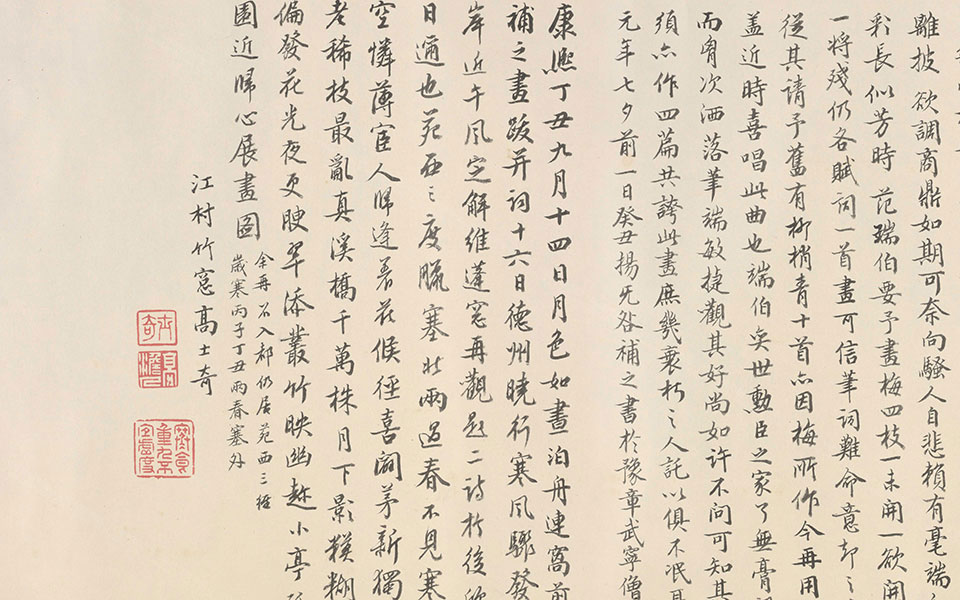 離披欲調商鼎如期可奈向騷人自悲賴有毫端
彩長似芳時范端伯要予畫梅四枝一未開一欲開
一將殘仍各賦詞一首畫可信筆詞難命意却之
從其請予舊有柳梢青十首亦因梅所作今再用
蓋近時喜唱此曲也端伯奕世勳臣之家了無膏
而胷次洒落筆端敏捷觀其好尚如許不問可知其
須亦作四篇共誇此畫庶幾衰朽之人託以俱不泯耳
元年七夕前一日癸丑揚无咎補之書於豫章武寧僧
康熙丁丑九月十四日月色如晝泊舟連窩前
補之畫跋并詞十六日德州曉行寒風驟發
岸近午風定解維蓬窓再觀題二詩於後欣
日邇也苑西三度臘塞北兩過春不見寒
空憐薄宦人歸逢着花候徑喜闢茅新獨
老稀枝最亂真溪橋千萬株月下影模糊
偏發花光夜更腴翠添叢竹映幽趁小亭
園近歸心展畫圖
余再召入都仍居苑西三經
歲寒丙子丁丑兩春塞外
江村竹窓高士奇
士奇